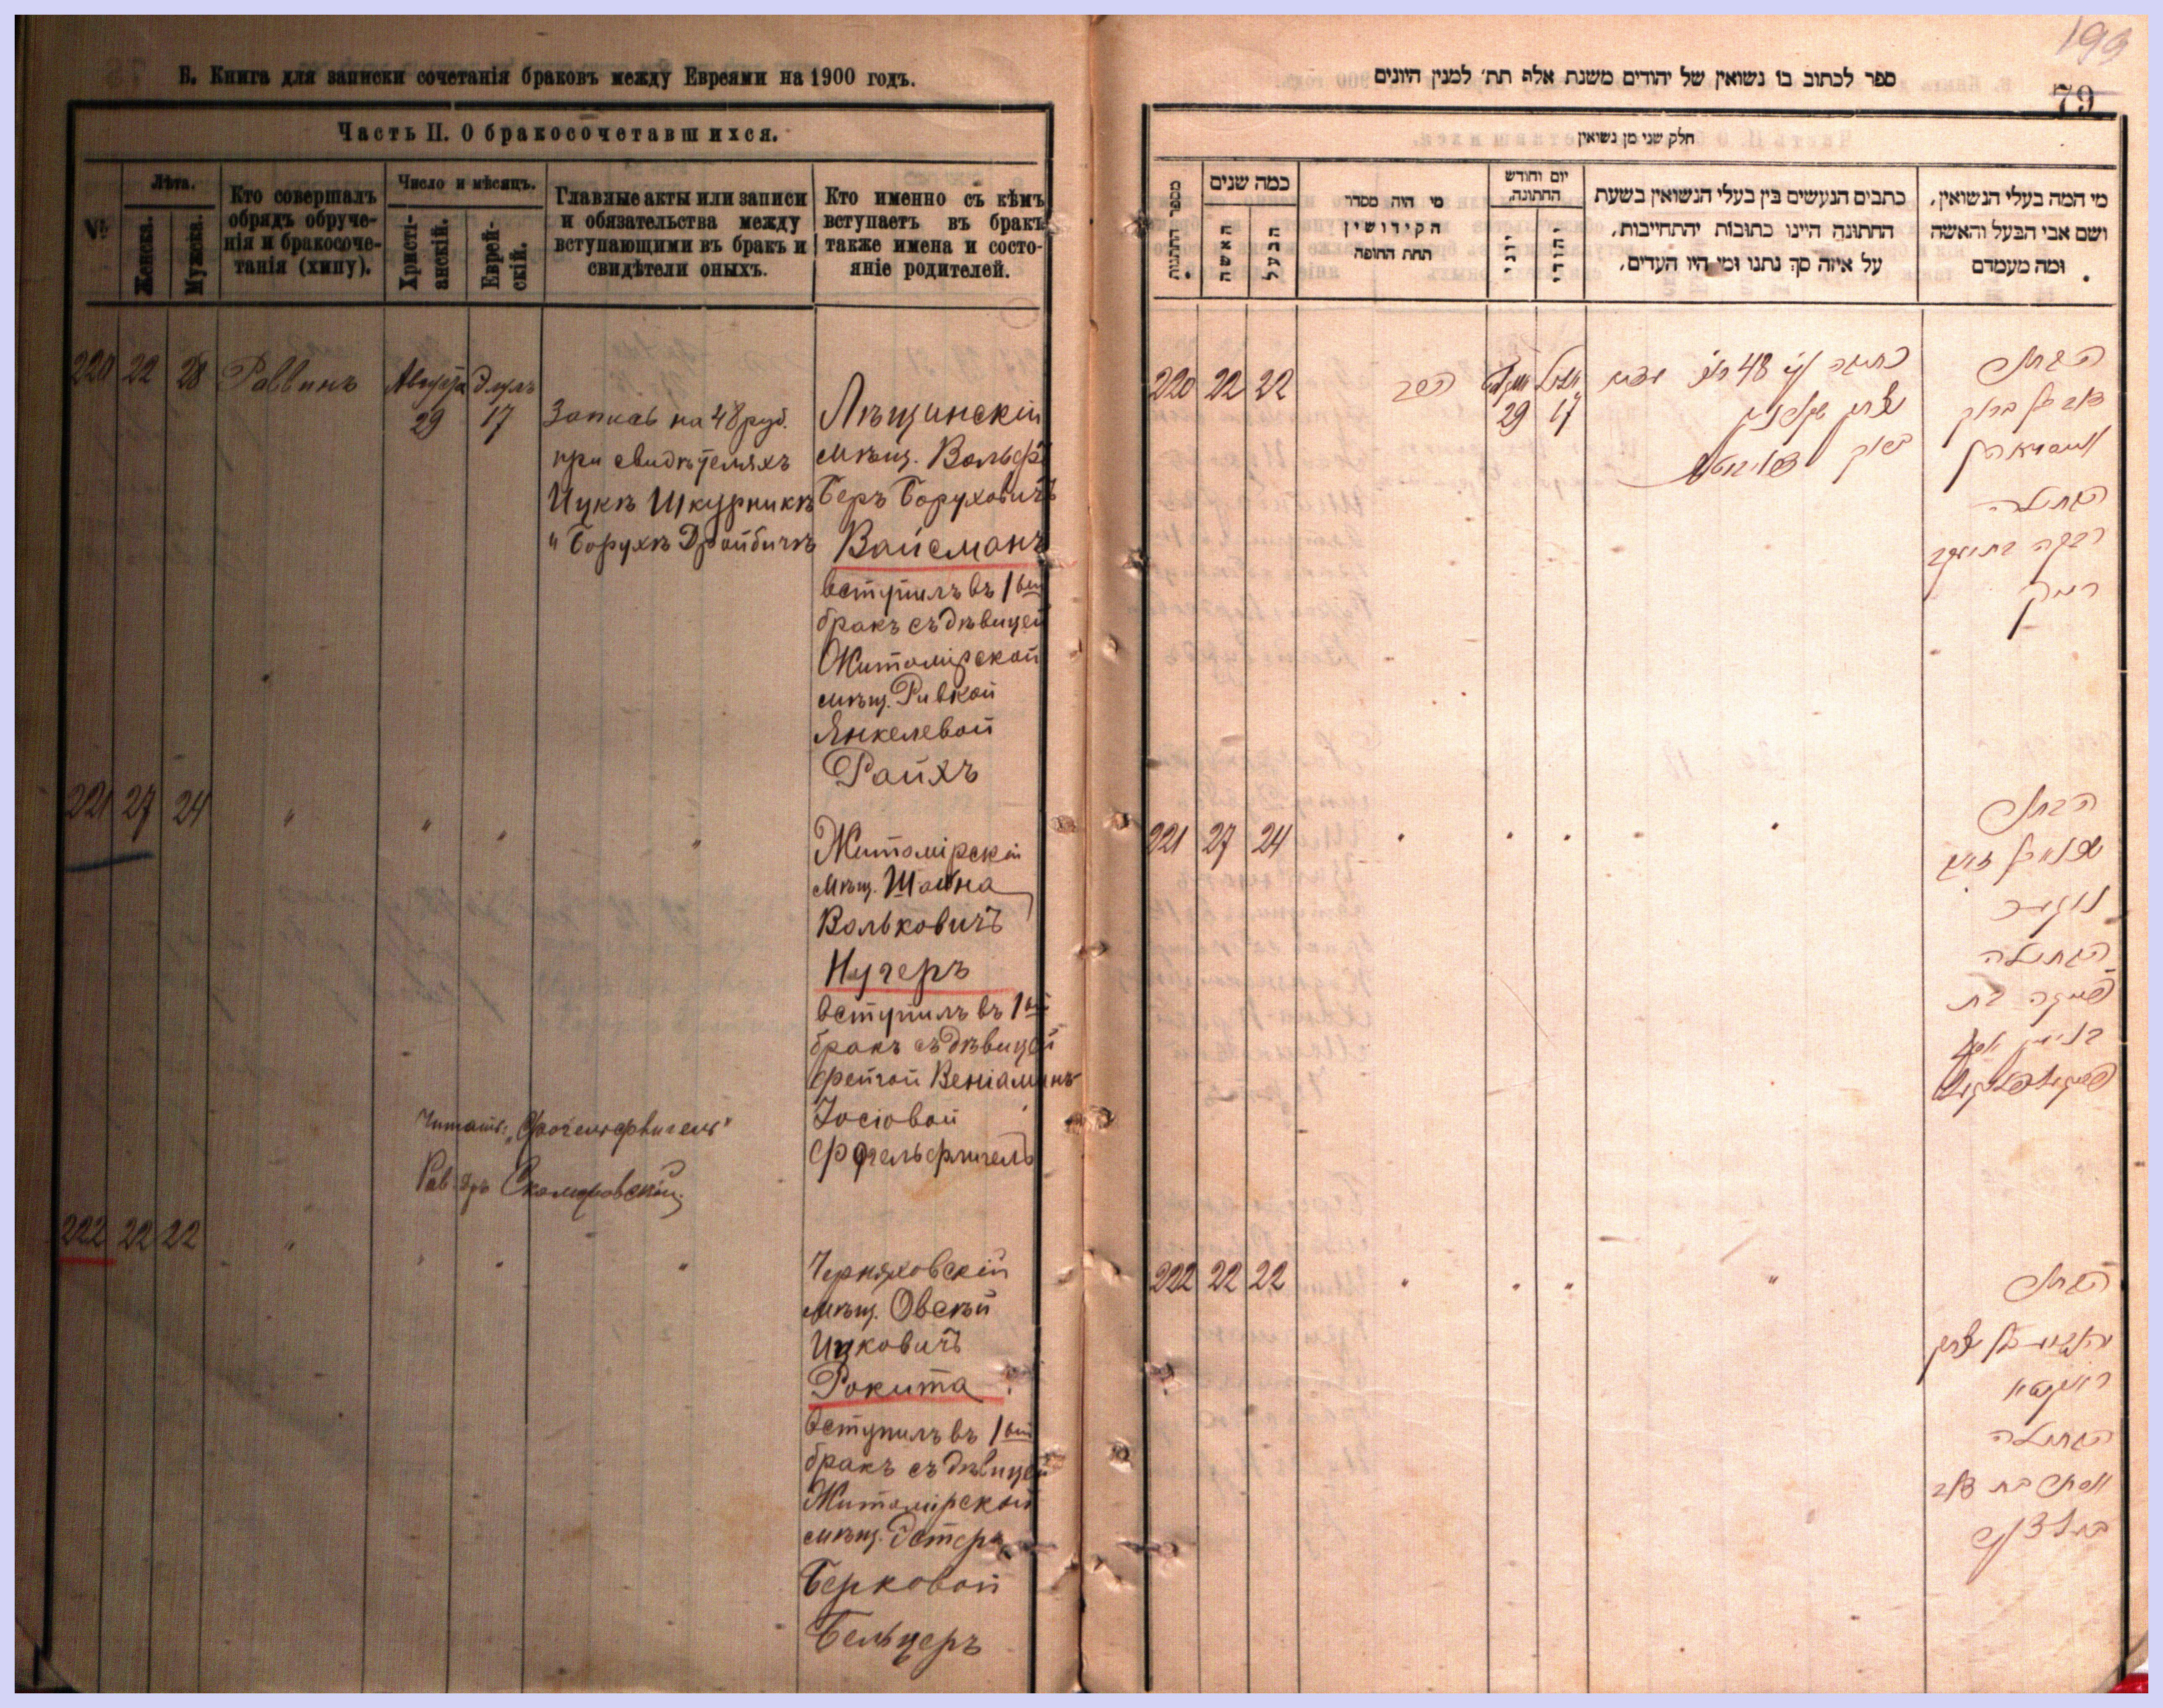 Б. Книга для записки сочетанія браковъ между Евреями на 1900 годъ.
Часть II. О бракосочетавшихся.
№
Лѣта.
Женска.
Мужска.
Кто совершалъ
обрядъ обруче-
нія и бракосоче-
танія (хипу).
Число и мѣсяцъ.
Христі-
анскій.
Еврей-
скій.
Главные акты или записи
и обязательства между
вступающими въ бракъ и
свидѣтели оныхъ.
Кто именно съ кѣмъ
вступаетъ въ бракъ
также имена и состо-
яніе родителей.
220 22 28 Раввинъ Августа Элулъ
29 17
Запись на 48 руб.
при свидѣтеляхъ
Ицкъ Шкурникъ
" Борухъ Дройбичъ
Лѣщинскій
мѣщ. Вольфъ
Беръ Боруховичъ
Вайсманъ
вступилъ въ 1ый
бракъ съ дѣвицей
Житомірской
мѣщ. Ривкой
Янкелевой
Райхъ
221 27 24 " " " "
Житомірскій
мѣщ. Шайна
Вольковичъ
Нугеръ
вступилъ въ 1ый
бракъ съ дѣвицей
Фейгой Веніаминъ
Іосіовой
Фогельфлигель
Читать: „Фогельфлигель"
Рав.
222 22 22 " " " "
Черняховскій
мѣщ. Овсѣй
Ицковичъ
Рокита
вступилъ въ 1ый
бракъ съ дѣвицей
Житомірской
мѣщ. Эстеръ
Берковой
Бельцеръ
199
79
ספר לכתוב בו נשואין של יהודים משנת אלף תת׳ למנין היונים
חלק שני מן נשואין
מספר החתונות
כמה שנים
האשה
הבעל
מי היה מסדר
הקידושין
תחת החופה
יום וחודש
החתונה
יוני
יהודי
כתבים הנעשים בין בעלי הנשואין בשעת
החתונה היינו כתובות יהתחייבות,
על איזה סך נתנו ומי היו העדים,
מי המה בעלי הנשואין,
ושם אבי הבעל והאשה
ומה מעמדם
220 22 22 הרב אלול
29 17
כתובה 48
יצחק
ברוך
החתן
בן ברוך
ווייסמאן
הבתולה
רבקה בת יעקב
רייך
221 27 24
החתן
נוגער
הבתולה
פייגה בת
בנימין יוסף
222 22 22
החתן
יהושע בן יצחק
ראקיטא
הבתולה
אסתר בת
בעלצער